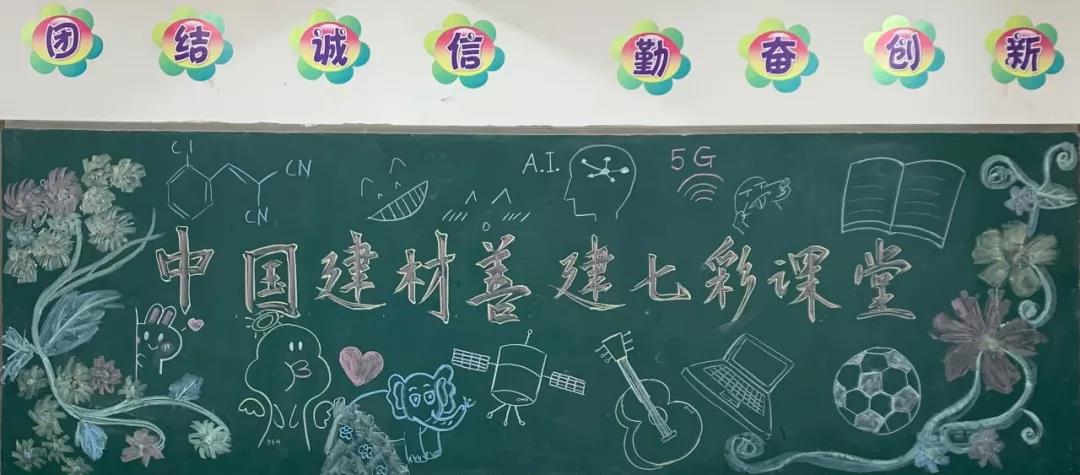 团 结 诚 信 勤 奋 创 新
Cl
CN
CN
A.I.
5G
中国建材善建七彩课堂